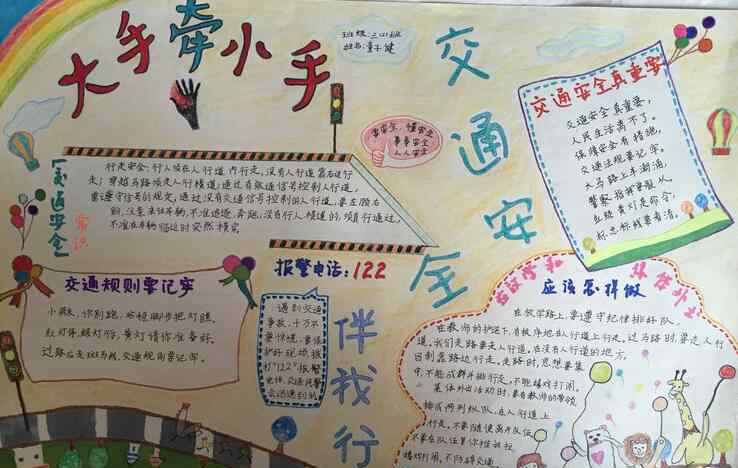 大手牵小手
班级:三(四)班
姓名:董子健
交通安全
伴我行
事事安全
人人安全
【交通安全】
常识
行走安全:行人须在人行道内行走,没有人行道靠右边行
走;穿越马路须走人行横道;通过有交通信号控制人行道,
需遵守信号的规定,通过没有交通信号控制的人行道,要左顾右
盼,注意来往车辆,不准追逐,奔跑;没有人行横道的,须直行通过,
不准在车辆临近时突然横穿
交通安全真重要
交通安全真重要,
人民生活离不了。
保障安全有措施,
交通法规要记牢。
大马路上车潮涌,
警察指挥要服从
红绿黄灯是命令,
标志标线要看清。
交通规则要记牢
小朋友,你别跑,站稳脚步把灯瞧。
红灯停,绿灯行,黄灯请你准备好。
过路应走斑马线,交通规则要记牢。
报警电话:122
遇到交通
事故,千万不
要惊慌,要保
护好现场,拨
打"122"报警
电话,交通民警
会迅速到的
在放学和
集体外出
应该怎样做
在放学路上,要遵守纪律排好队,
在教师的护送下,有秩序地在人行道上行走。过马路时,要走人行
道。我们走路要走人行道。在没有人行道的地方,
目到靠路边行走。走路时,思想要集
中,不能成群并排行走,不能嬉戏打闹。
集体外出活动时,要在教师的带领
排成两列纵队,在人行道上
行走,不要随便离开队伍
不要在队伍里你推我拉
嬉戏打闹,不妨碍交通